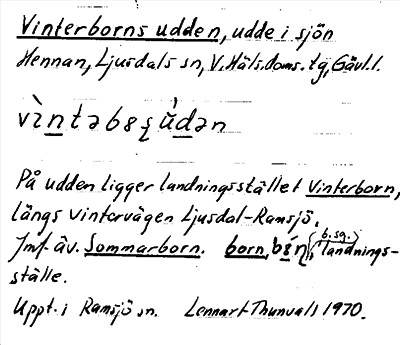 Vinterborns udden, udde i sjön
Hennan, Ljusdals sn, V. Häls. doms. tg, Gävl. l.
vìntəbꞛʂ ú̆dən
På udden ligger landningsstället Vinterborn,
längs vintervägen Ljusdal-Ramsjö.
Jmf. äv. Sommarborn. born, (b. sg.) landnings-
ställe.
Uppt. i Ramsjö sn. Lennart Thunvall 1970.